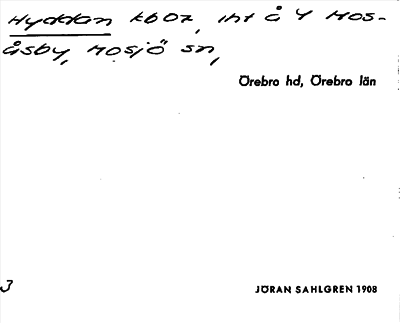 Hyddan kboz, int å 4 Mos-
åsby, Mosjö sn,
Örebro hd, Örebro län
3
JÖRAN SAHLGREN 1908